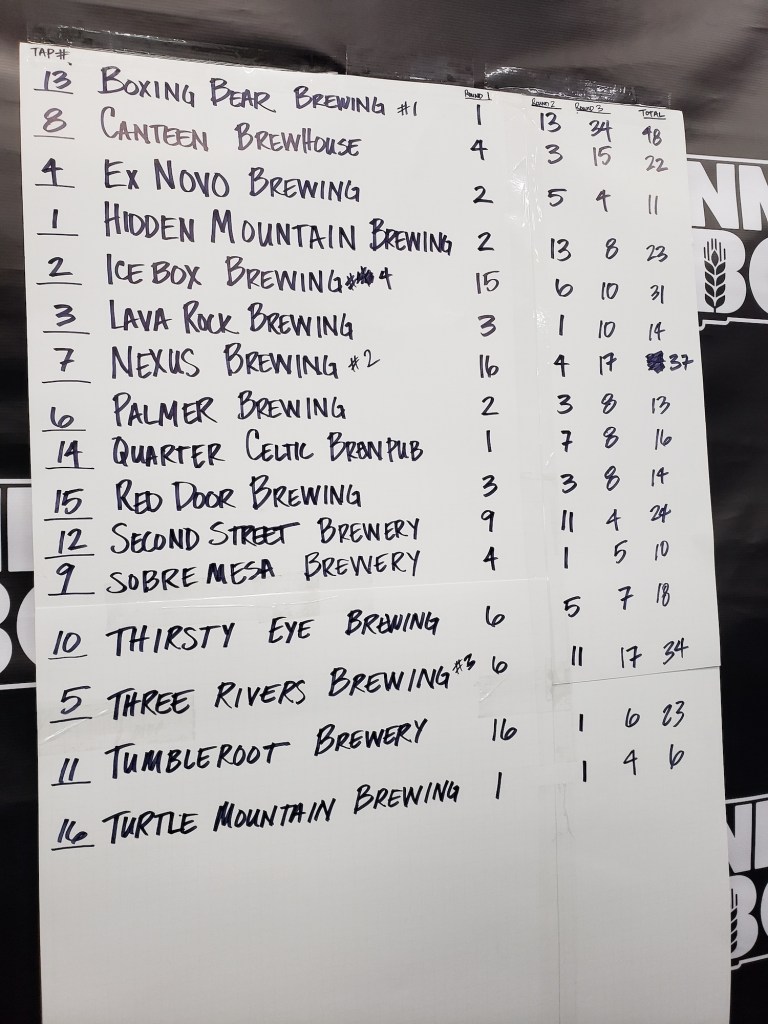 TAP #. ROUND 1 ROUND 2 ROUND 3 TOTAL
13 BOXING BEAR BREWING #1 1 13 34 48
8 CANTEEN BREWHOUSE 4 3 15 22
4 EX NOVO BREWING 2 5 4 11
1 HIDDEN MOUNTAIN BREWING 2 13 8 23
2 ICEBOX BREWING #4 15 6 10 31
3 LAVA ROCK BREWING 3 1 10 14
7 NEXUS BREWING #2 16 4 17 37
6 PALMER BREWING 2 3 8 13
14 QUARTER CELTIC BREWPUB 1 7 8 16
15 RED DOOR BREWING 3 3 8 14
12 SECOND STREET BREWERY 9 11 4 24
9 SOBREMESA BREWERY 4 1 5 10
10 THIRSTY EYE BREWING 6 5 7 18
5 THREE RIVERS BREWING #3 6 11 17 34
11 TUMBLEROOT BREWERY 16 1 6 23
16 TURTLE MOUNTAIN BREWING 1 1 4 6